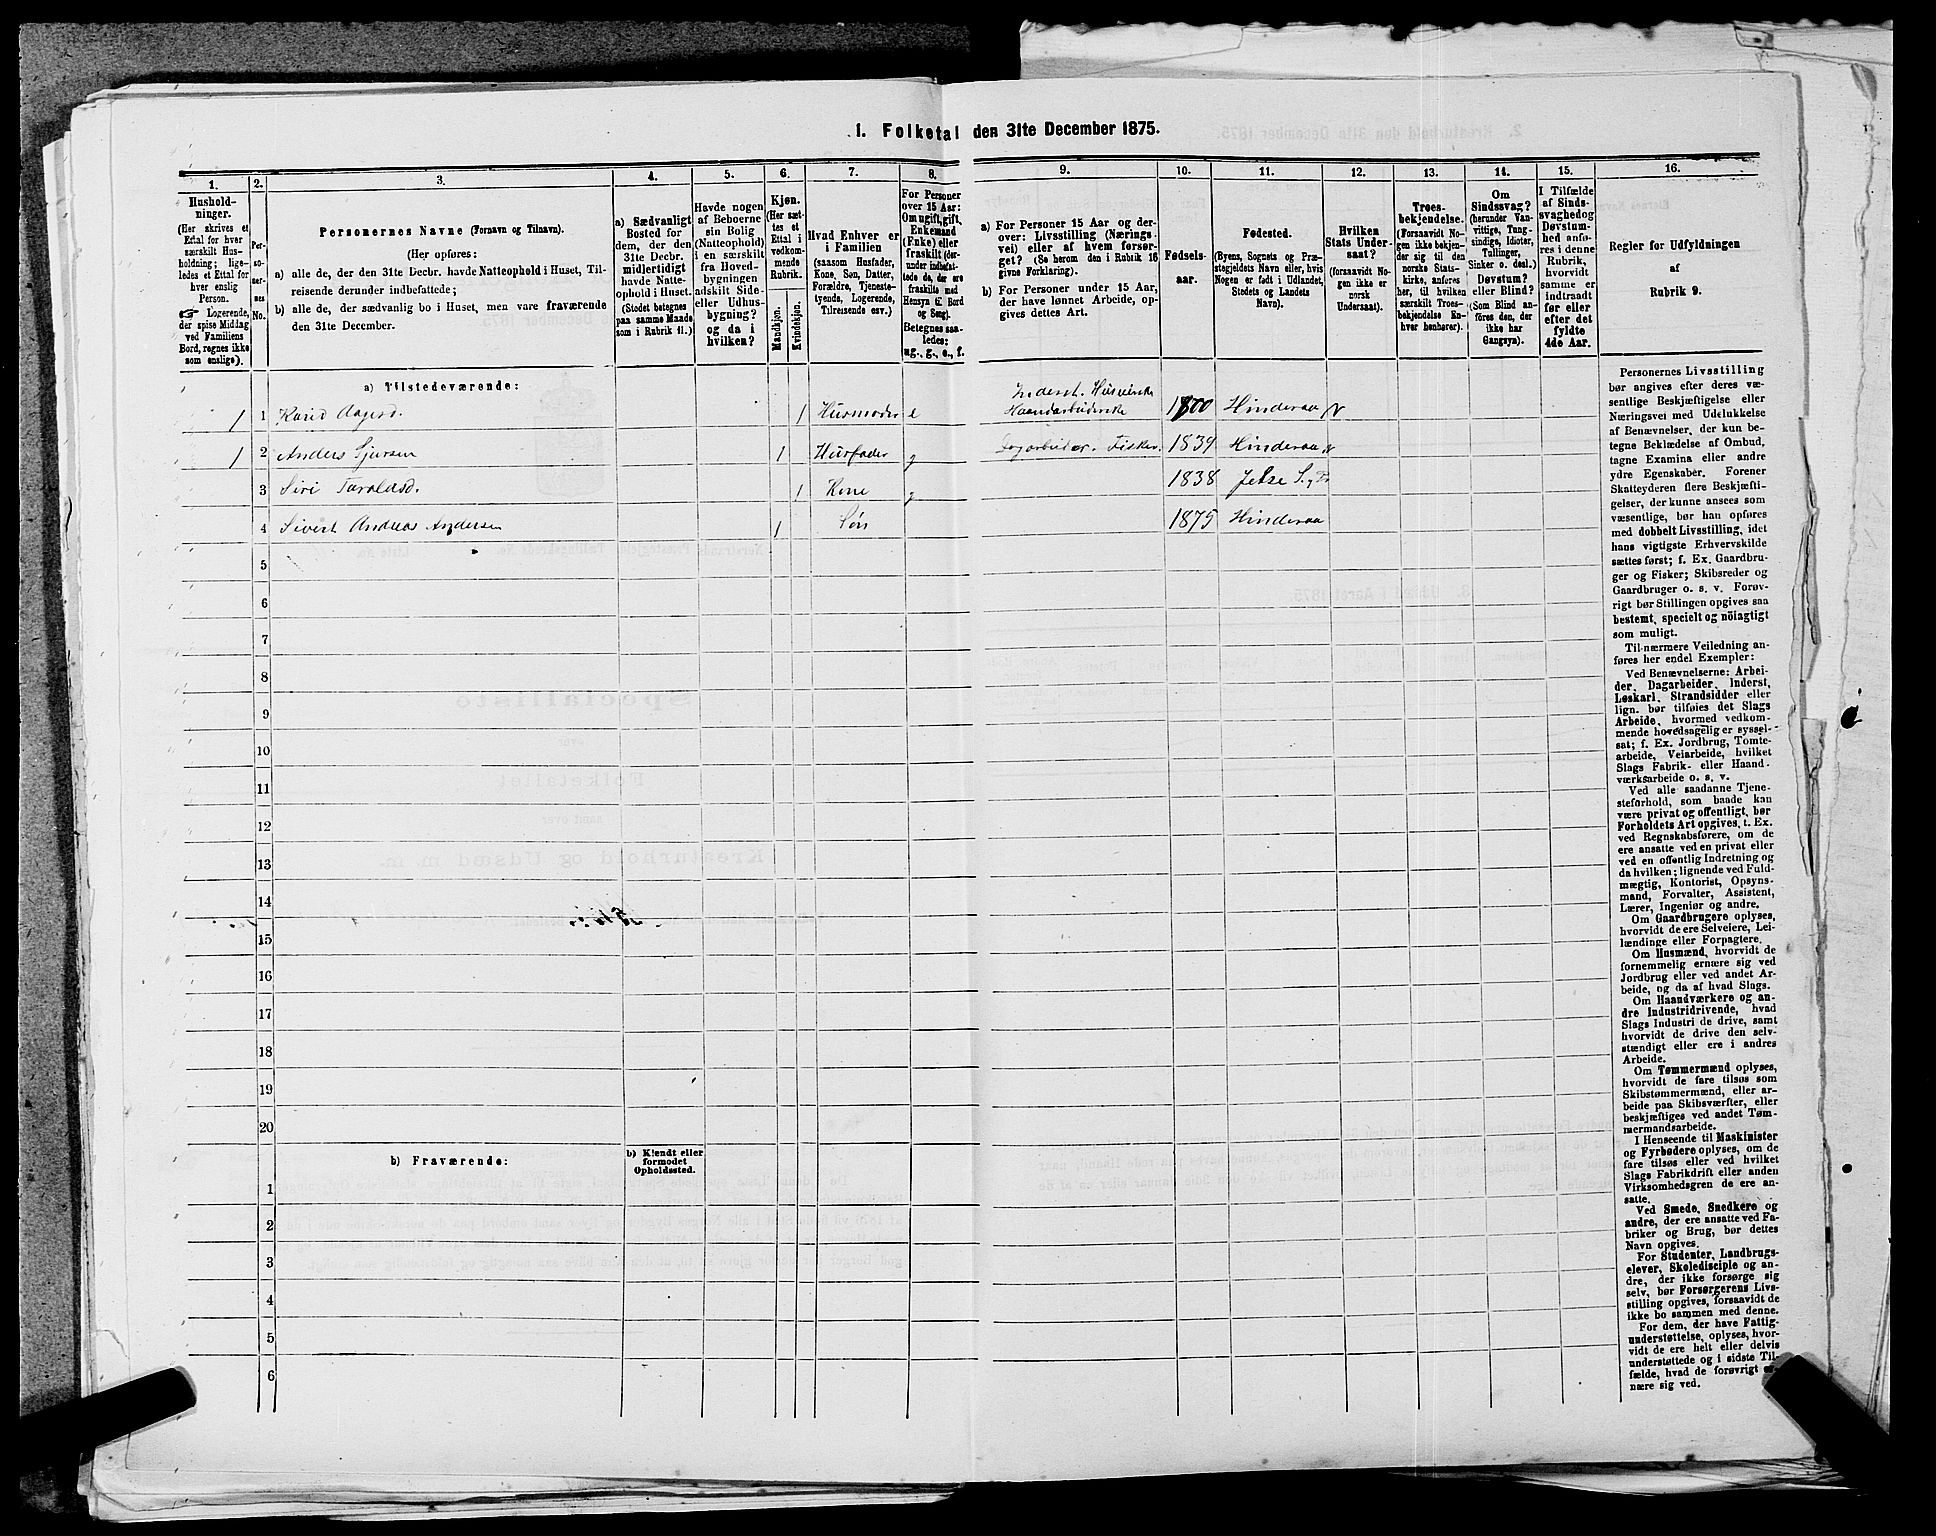 1. Folketal den 31te December 1875.
1. 2. 3. 4. 5. 6. 7. 8. 9. 10. 11. 12. 13. 14. 15. 16.
Hushold-
ninger.
(Her skrives et
Ettal for hver
særskilt Hus-
holdning; lige-
ledes et Ettal for
hver enslig
Person.
☞ Logerende,
der spise Middag
ved Familiens
Bord, regnes ikke
som enslige).
Per-
so-
ner-
nes
No.
Personernes Navne (Fornavn og Tilnavn).
(Her opføres:
a) alle de, der den 31te Decbr. havde Natteophold i Huset, Til-
reisende derunder indbefattede;
b) alle de, der sædvanlig bo i Huset, men vare fraværende
den 31te December.
a) Sædvanligt
Bosted for
dem, der den
31te Decbr.
midlertidigt
havde Natte-
ophold i Huset.
(Stedet betegnes
paa samme Maade
som i Rubrik 11.)
Havde nogen
af Beboerne
sin Bolig
(Natteophold)
i en særskilt
fra Hoved-
bygningen
adskilt Side-
eller Udhus-
bygning?
og da i
hvilken?
Kjøn.
(Her sæt-
tes et
Ettal i
vedkom-
mende
Rubrik.
Mandkjøn.
Kvindekjøn.
Hvad Enhver er
i Familien
(saasom Husfader,
Kone, Søn, Datter,
Forældre, Tjeneste-
tyende, Logerende,
Tilreisende osv.)
For Personer
over 15 Aar:
Om ugift, gift,
Enkemand
(Enke) eller
fraskilt (der-
under indbefat-
tede de, der ere
fraskilte med
Hensyn til Bord
og Seng).
Betegnes saa-
ledes:
ug., g., e., f.
a) For Personer 15 Aar og der-
over: Livsstilling (Nærings-
vei) eller af hvem forsør-
get? (Se herom den i Rubrik 16
givne Forklaring).
b) For Personer under 15 Aar,
der have lønnet Arbeide, op-
gives dettes Art.
Fødsels-
aar.
Fødested.
(Byens, Sognets og Præ-
stegjeldets Navn eller, hvis
Nogen er født i Udlandet,
Stedets og Landets
Navn).
Hvilken
Stats Under-
saat?
(forsaavidt No-
gen ikke er
norsk
Undersaat).
Troes-
bekjendelse.
(Forsaavidt No-
gen ikke bekjen-
der sig til den
norske Stats-
kirke, anføres
her, til hvilken
særskilt Troes-
bekjendelse En-
hver henhører).
Om
Sindssvag?
(herunder Van-
vittige, Tung-
sindige, Idioter,
Tullinger,
Sinker o. desl.)
Døvstum?
eller Blind?
(Som Blind an-
føres den, der
ikke har
Gangsyn).
I Tilfælde
af Sinds-
svaghed og
Døvstum-
hed anfø-
res i denne
Rubrik,
hvorvidt
samme er
indtraadt
før eller
efter det
fyldte
4de Aar.
Regler for Udfyldningen
af
Rubrik 9.
a) Tilstedeværende:
Inderst. Husvirske
1 1 Karid Aagesd. 1 Husmoder e Haandarbeiderske 1800 Hinderaa
1 2 Anders Sjursen 1 Husfader g Dagarbeider. Fisker. 1839 Hinderaa
3 Siri Taraldsd. 1 Kone g 1838 Jelse
4 Sivert Andreas Andersen 1 Søn 1875 Hinderaa
5
6
7
8
9
10
11
12
13
14
15
16
17
18
19
20
b) Fraværende:
b) Kjendt eller
formodet
Opholdssted.
1
2
3
4
5
6
Personernes Livsstilling
bør angives efter deres væ-
sentlige Beskjæftigelse eller
Næringsvei med Udelukkelse
af Benævnelser, der kun be-
tegne Beklædelse af Ombud,
tagne Examina eller andre
ydre Egenskaber. Forener
Skatteyderen flere Beskjæfti-
gelser, der kunne ansees som
væsentlige, bør han opføres
med dobbelt Livsstilling, idet
hans vigtigste Erhvervskilde
sættes først; f. Ex. Gaardbru-
ger og Fisker; Skibsreder og
Gaardbruger o. s. v. Forøv-
rigt bør Stillingen opgives saa
bestemt, specielt og nöiagtigt
som muligt.
Til nærmere Veiledning an-
føres her endel Exempler:
Ved Benævnelserne: Arbei-
der, Dagarbeider, Inderst,
Løskarl, Strandsidder eller
lign. bør tilføies det Slags
Arbeide, hvormed vedkom-
mende hovedsagelig er syssel-
sat; f. Ex. Jordbrug, Tomte-
arbeide, Veiarbeide, hvilket
Slags Fabrik- eller Haand-
værksarbeide o. s. v.
Ved alle saadanne Tjene-
steførhold, som baade kan
være privat og offentligt, bør
Forholdets Art opgives, t. Ex.
ved Regnskabsførere, om de
ere ansatte ved en privat eller
ved en offentlig Indretning og
da hvilken; lignende ved Fuld-
mægtig, Kontorist, Opsyns-
mand, Forvalter, Assistent,
Lærer, Ingeniør og andre.
Om Gaardbrugere oplyses,
hvorvidt de ere Selveiere, Lei-
lændinge eller Forpagtere.
Om Husmænd, hvorvidt de
fornemmelig ernære sig ved
Jordbrug eller ved andet Ar-
beide, og da af hvad Slags.
Om Haandværkere og an-
dre Industridrivende, hvad
Slags Industri de drive, samt
hvorvidt de drive den selv-
stændigt eller ere i andres
Arbeide.
Om Tømmermænd oplyses,
hvorvidt de fare tilsøs som
Skibstømmermænd, eller ar-
beide paa Skibsværfter, eller
beskjæftiges ved andet Tøm-
mermandsarbeide.
I Henseende til Maskinister
og Fyrbødere oplyses, om de
fare tilsøs eller ved hvilket
Slags Fabrikdrift eller anden
Virksomhedsgren de ere an-
satte.
Ved Smede, Snedkere og
andre, der ere ansatte ved Fa-
briker og Brug, bør dettes
Navn opgives.
For Studenter, Landbrugs-
elever, Skoledisciple og an-
dre, der ikke forsørge sig
selv, bør Forsørgerens Livs-
stilling opgives, forsaavidt de
ikke bo sammen med denne.
For dem, der have Fattig-
understøttelse, oplyses, hvor-
vidt de ere helt eller delvis
understøttede og i sidste Til-
fælde, hvad de forøvrigt er-
nære sig ved.